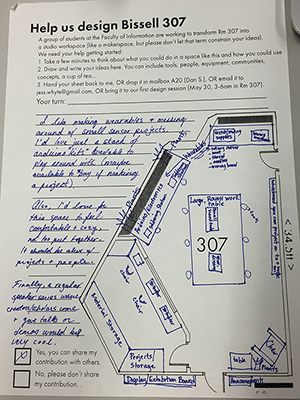 Help us design Bissell 307
A group of students at the Faculty of Information are working to transform Rm 307 into
a studio workspace (like a makerspace, but please don't let that term constrain your ideas).
We need your help getting started:
1. Take a few minutes to think about what you could do in a space like this and how you could use
2. Draw and write your ideas here. You can include tools, people, equipment, competencies,
concepts, a cup of tea...
3. Hand your sheet back to me, OR drop it in mailbox A20 (Dan S.), OR email it to
jess.whyte@gmail.com, OR bring it to our first design session (May 30, 3-6pm in Rm 307)
Your turn:
I like making wearables & messing
around of small sensor projects.
I'd love just a stack of
arduino kits available to
play around with (maybe
available to buy if making
a project).
Also, I'd love for
this space to feel
comfortable & cozy,
not too put together.
It should be alive of
projects & people.
Finally, a regular
speaker series where
creators/scholars come
& give talks or
demos would be
very cool.
Yes, you can share my
contribution with others.
No, please don't share
my contribution.
Plants
Plants
Wearables
Arduino/Electronics
Soldering Station
Large, Rough work
table
307
< 34.5 ft >
Material Storage
Projects/
Storage
Display/Exhibition Boxes
table
Plants
Announcements